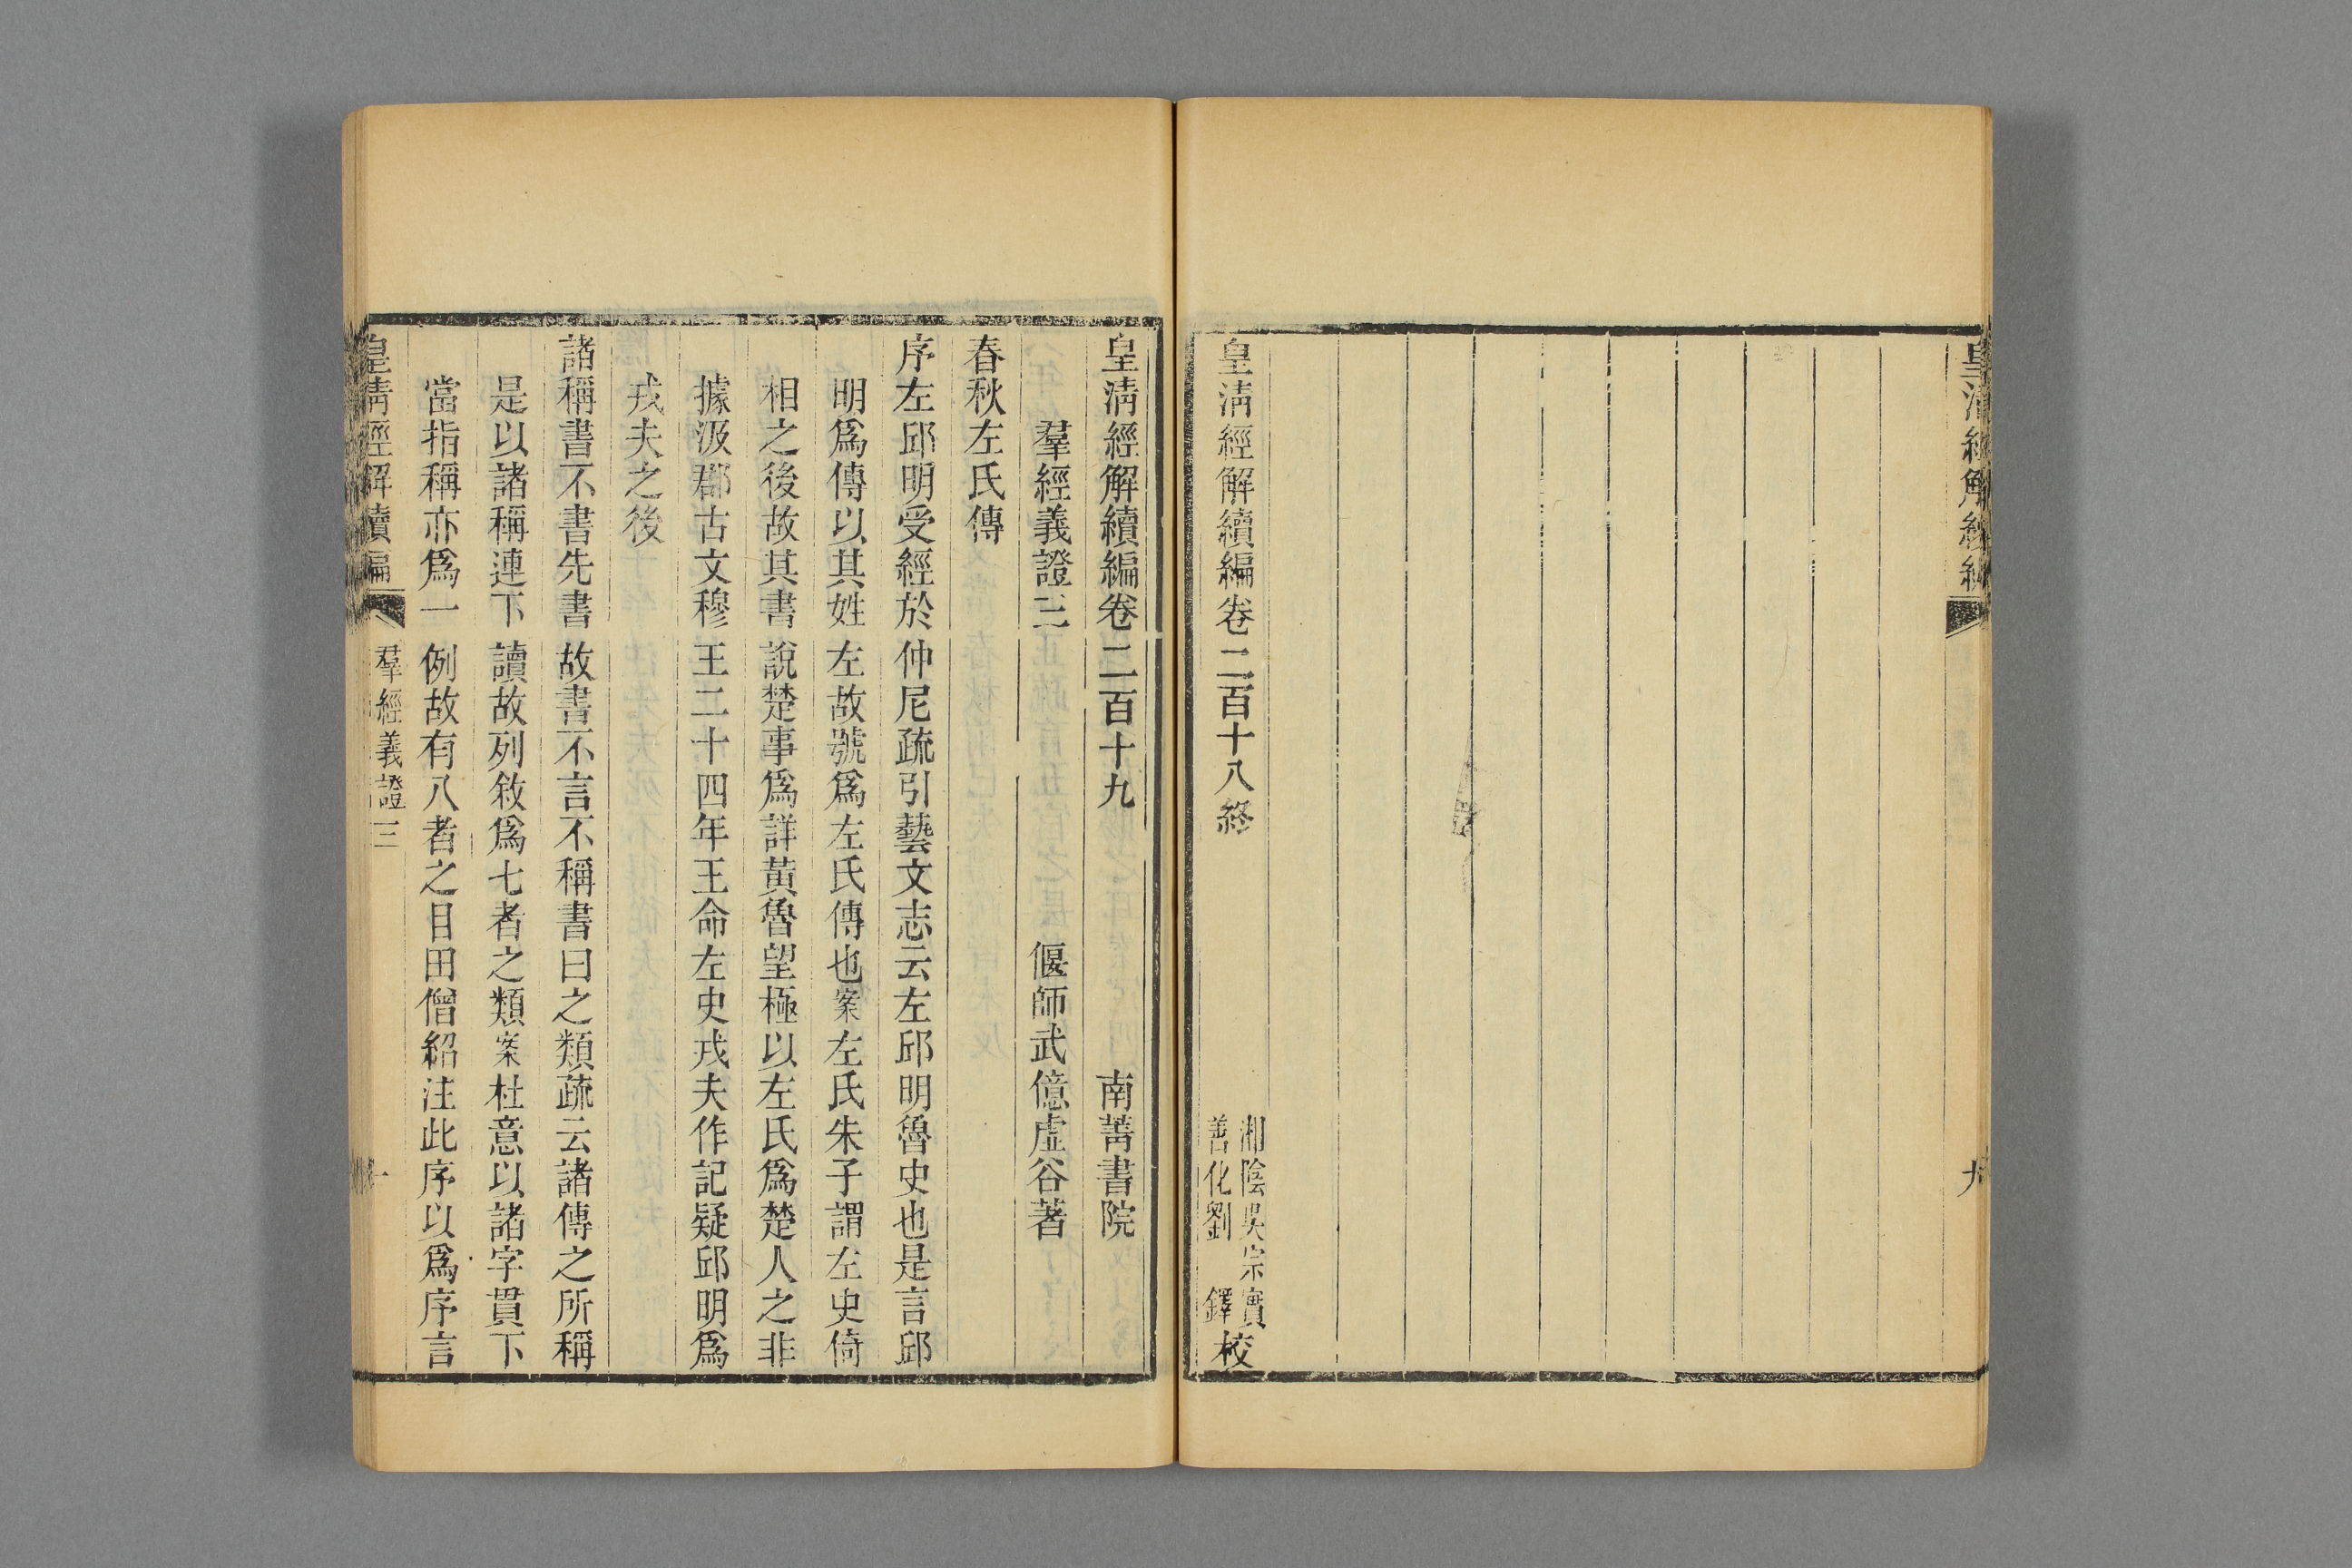 皇清經解續編
九
皇清經解續編卷二百十八終
湘陰吳宗實
善化劉鐸校
皇清經解續編卷二百十九 南菁書院
羣經義證三 偃師武億虛谷著
春秋左氏傳
序左邱明受經於仲尼疏引藝文志云左邱明魯史也是言邱
明爲傳以其姓左故號爲左氏傳也案左氏朱子謂左史倚
相之後故其書說楚事爲詳黃魯望極以左氏爲楚人之非
據汲郡古文穆王二十四年王命左史戎夫作記疑邱明爲
戎夫之後
諸稱書不書先書故書不言不稱書曰之類疏云諸傳之所稱
是以諸稱連下讀故列敘爲七者之類案杜意以諸字貫下
當指稱亦爲一例故有八者之目田僧紹注此序以爲序言
皇清經解續編 羣經義證三 一